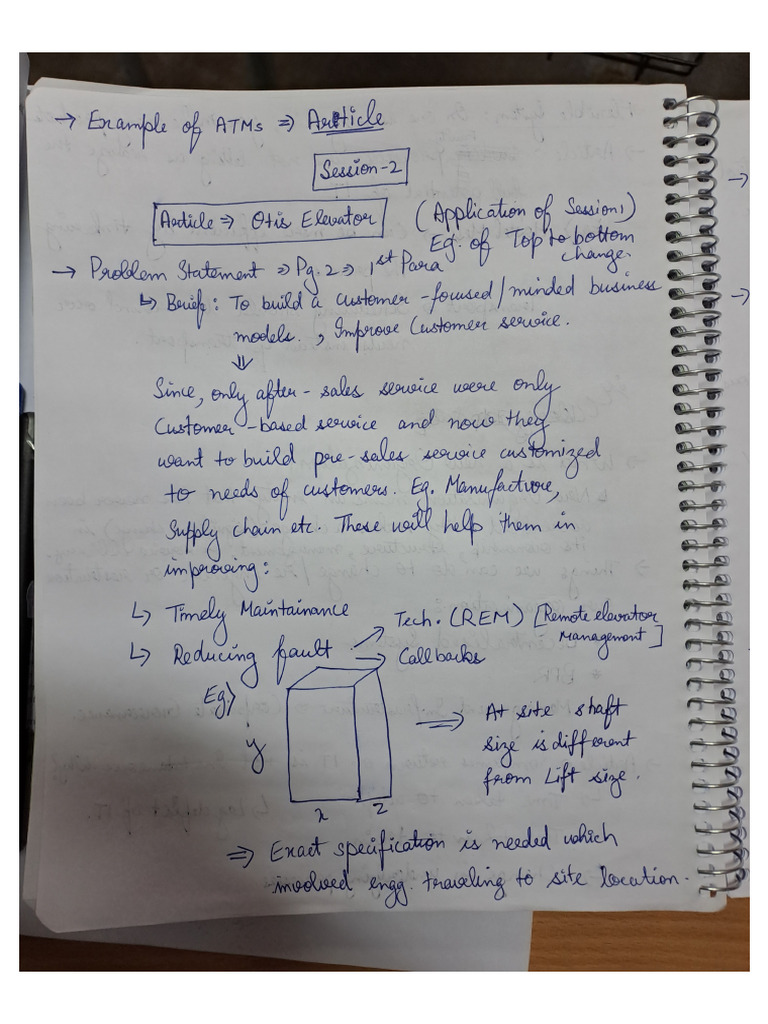 → Example of ATMs ⇒ Article
Session-2
Article ⇒ Otis Elevator (Application of Session 1)
Eg. of Top to bottom
change.
→ Problem Statement ⇒ Pg. 2 ⇒ 1st Para
↳ Brief: To build a customer-focused/minded business
models., Improve Customer service.
⇓
Since, only after-sales service were only
Customer-based service and now they
want to build pre-sales service customized
to needs of customers. Eg. Manufacture,
Supply chain etc. These will help them in
improving:
↳ Timely Maintainance
↳ Reducing fault → Tech. (REM) [Remote elevator
Management]
→ Callbacks
Eg>
y
x
z
⇒ At site shaft
size is different
from Lift size.
⇒ Exact specification is needed which
involved engg. traveling to site location.